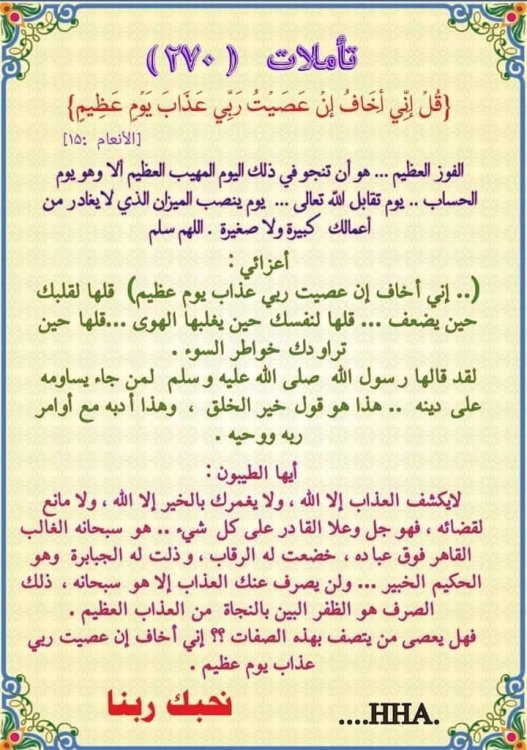 تأملات ( ٢٧٠ )
{قُلْ إِنِّي أَخَافُ إِنْ عَصَيْتُ رَبِّي عَذَابَ يَوْمٍ عَظِيمٍ}
[الأنعام :١٥]
الفوز العظيم ... هو أن تنجو في ذلك اليوم المهيب العظيم ألا وهو يوم
الحساب .. يوم تقابل الله تعالى ... يوم ينصب الميزان الذي لا يغادر من
أعمالك كبيرة ولا صغيرة . اللهم سلم
أعزائي :
(.. إني أخاف إن عصيت ربي عذاب يوم عظيم) قلها لقلبك
حين يضعف ... قلها لنفسك حين يغلبها الهوى ...قلها حين
تراودك خواطر السوء .
لقد قالها رسول الله صلى الله عليه وسلم لمن جاء يساومه
على دينه .. هذا هو قول خير الخلق ، وهذا أدبه مع أوامر
ربه ووحيه .
أيها الطيبون :
لايكشف العذاب إلا الله ، ولا يغمرك بالخير إلا الله ، ولا مانع
لقضائه ، فهو جل وعلا القادر على كل شيء .. هو سبحانه الغالب
القاهر فوق عباده ، خضعت له الرقاب ، وذلت له الجبابرة وهو
الحكيم الخبير ... ولن يصرف عنك العذاب إلا هو سبحانه ، ذلك
الصرف هو الظفر البين بالنجاة من العذاب العظيم .
فهل يعصى من يتصف بهذه الصفات ؟؟ إني أخاف إن عصيت ربي
عذاب يوم عظيم .
نحبك ربنا
....HHA.